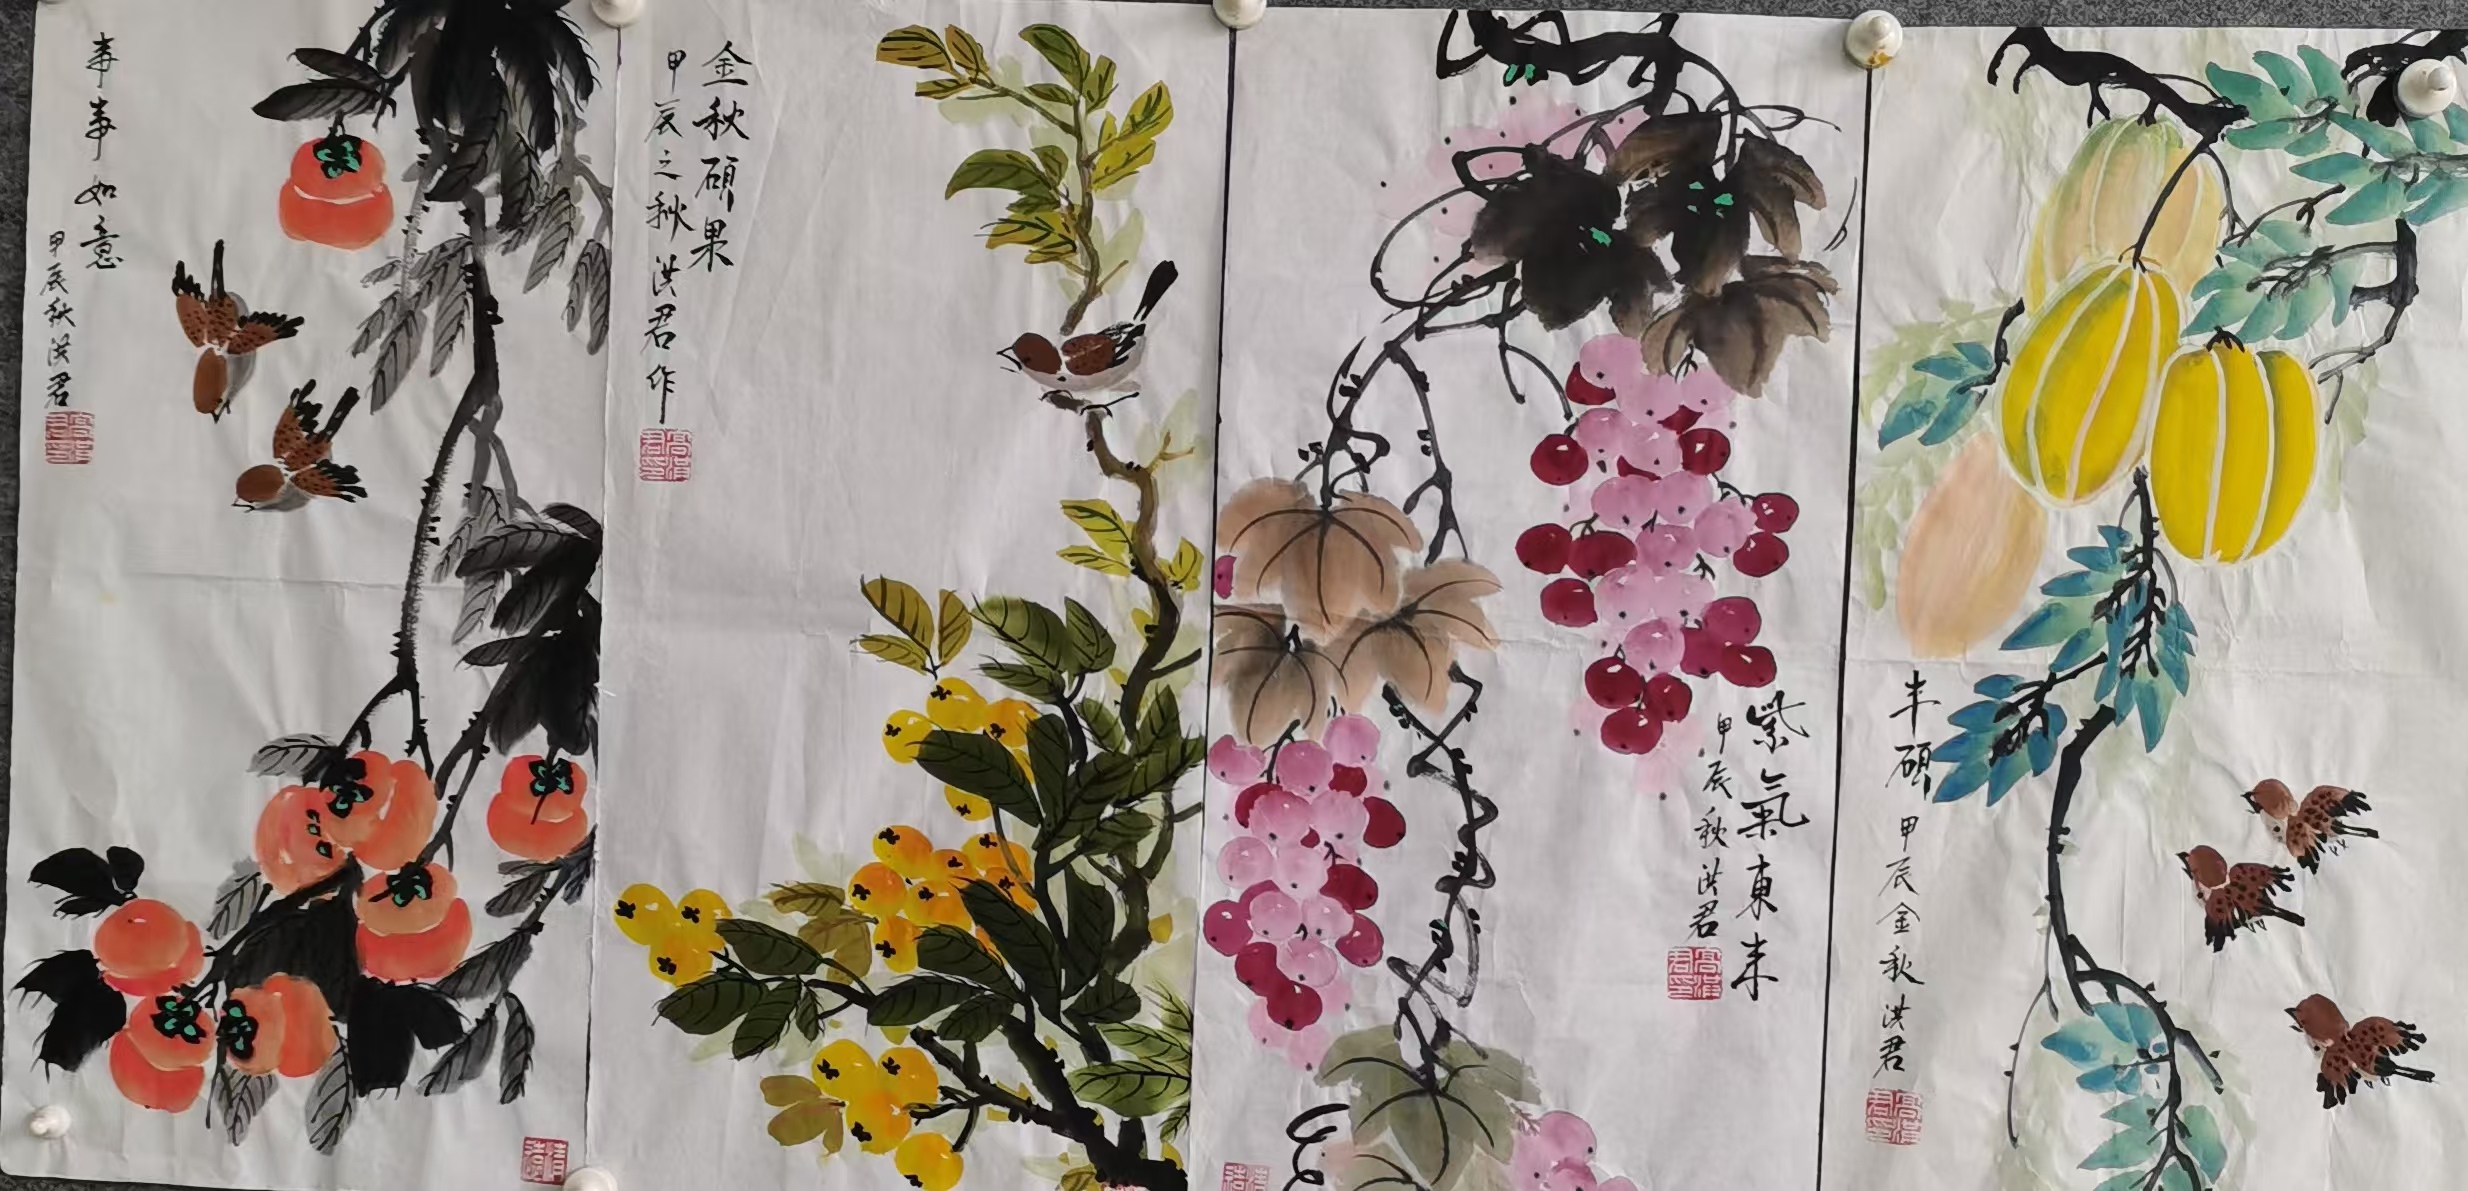 事事如意
甲辰秋洪君
金秋硕果
甲辰之秋洪君作
紫氣東来
甲辰秋洪君
丰硕
甲辰金秋洪君